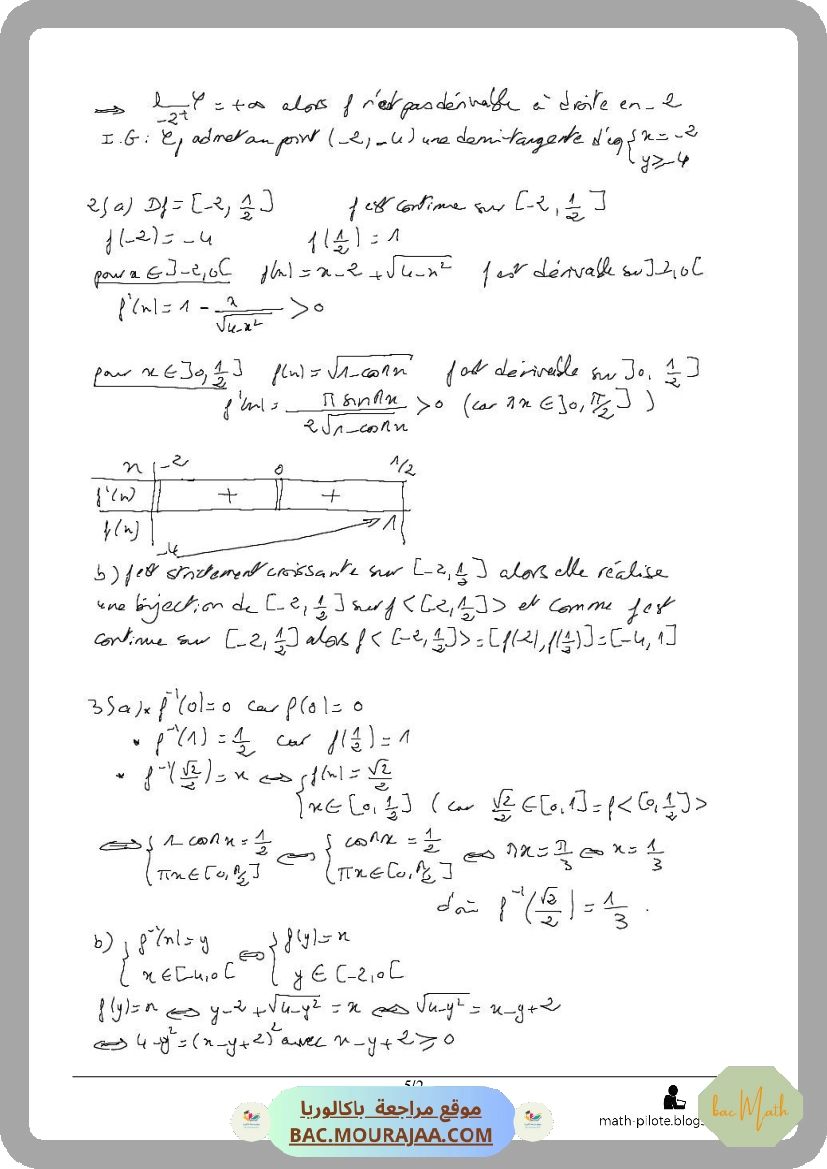 ⟹ lim_{-2⁺} φ = +∞ alors f n'est pas dérivable à droite en -2
I.G : Cf admet au point (-2, -4) une demi-tangente d'éq { x = -2
y ≥ -4
2) a) Df = [-2, 1/2]    f est continue sur [-2, 1/2]
f(-2) = -4    f(1/2) = 1
pour x ∈ ]-2, 0[  f(x) = x - 2 + √(4-x²)  f est dérivable sur ]-2, 0[
f'(x) = 1 - x/√(4-x²) > 0
pour x ∈ ]0, 1/2]  f(x) = √(1-cosπx)  f est dérivable sur ]0, 1/2]
f'(x) = π sinπx / 2√(1-cosπx) > 0 (car πx ∈ ]0, π/2])
x -2 0 1/2
f'(x) + +
f(x) -4 1
b) f est strictement croissante sur [-2, 1/2] alors elle réalise
une bijection de [-2, 1/2] sur f<[-2, 1/2]> et comme f est
continue sur [-2, 1/2] alors f<[-2, 1/2]> = [f(-2), f(1/2)] = [-4, 1]
3) a) * f⁻¹(0) = 0 car f(0) = 0
* f⁻¹(1) = 1/2 car f(1/2) = 1
* f⁻¹(√2/2) = x ⟺ { f(x) = √2/2
x ∈ [0, 1/2] (car √2/2 ∈ [0, 1] = f<[0, 1/2]>
⟺ { 1-cosπx = 1/2 ⟺ { cosπx = 1/2 ⟺ πx = π/3 ⟺ x = 1/3
πx ∈ [0, π/2] πx ∈ [0, π/2]
d'où f⁻¹(√2/2) = 1/3 .
b) { f⁻¹(x) = y ⟺ { f(y) = x
x ∈ [-4, 0[ y ∈ [-2, 0[
f(y) = x ⟺ y - 2 + √(4-y²) = x ⟺ √(4-y²) = x - y + 2
⟺ 4 - y² = (x - y + 2)² avec x - y + 2 ≥ 0
موقع مراجعة باكالوريا
BAC.MOURAJAA.COM
math-pilote.blogs
bac Math